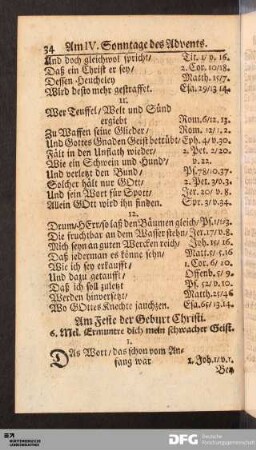 34 Am IV. Sonntage des Advents.
Und doch gleichwol spricht/ Tit. 1/ v. 16.
Daß ein Christ er sey/ 2. Cor. 10/18.
Dessen Heucheley Matth. 15/7.
Wird desto mehr gestraffet. Esa. 29/13 14.
11.
Wer Teuffel/ Welt und Sünd
ergiebt Rom. 6/12. 13.
Zu Waffen seine Glieder/ Rom. 12/1, 2.
Und Gottes Gnaden Geist betrübt/ Eph. 4/v. 30.
Fält in den Unflath wieder/ 2. Pet. 2/20.
Wie ein Schwein und Hund/ v. 22.
Und verletzt den Bund/ Ps. 78/10. 37.
Solcher hält nur Gott/ 2. Pet. 3/0 3.
Und sein Wort für Spott/ Jer. 20/ v. 8.
Allein GOtt wird ihn finden. Spr. 3/v. 34.
12.
Drum/ HErr/ so laß den Bäumen gleich/ Ps. 1/v. 3.
Die fruchtbar an dem Wasser stehn/ Jer. 17/ v. 8.
Mich seyn an guten Wercken reich/ Joh. 15/ 16.
Daß jederman es könne sehn/ Matt. 5/ 16
Wie ich sey erkaufft/ 1. Cor. 6/ 10.
Und dazu getaufft/ Offenb. 5/ 9.
Daß ich soll zuletzt Ps. 52/ v. 10.
Werden hinversetzt/ Matth. 25/46
Wo GOttes Knechte jauchzen. Esa. 65/ 13. 14.
Am Feste der Geburt Christi.
6. Mel. Ermuntre dich mein schwacher Geist.
1.
DAs Wort/ das schon vom An-
fang war 1. Joh. 1/ v. 1.
Bey
DFG Deutsche
Forschungsgemeinschaft